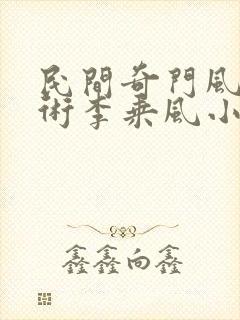 民間奇門風
術李乘風小
鑫鑫向鑫